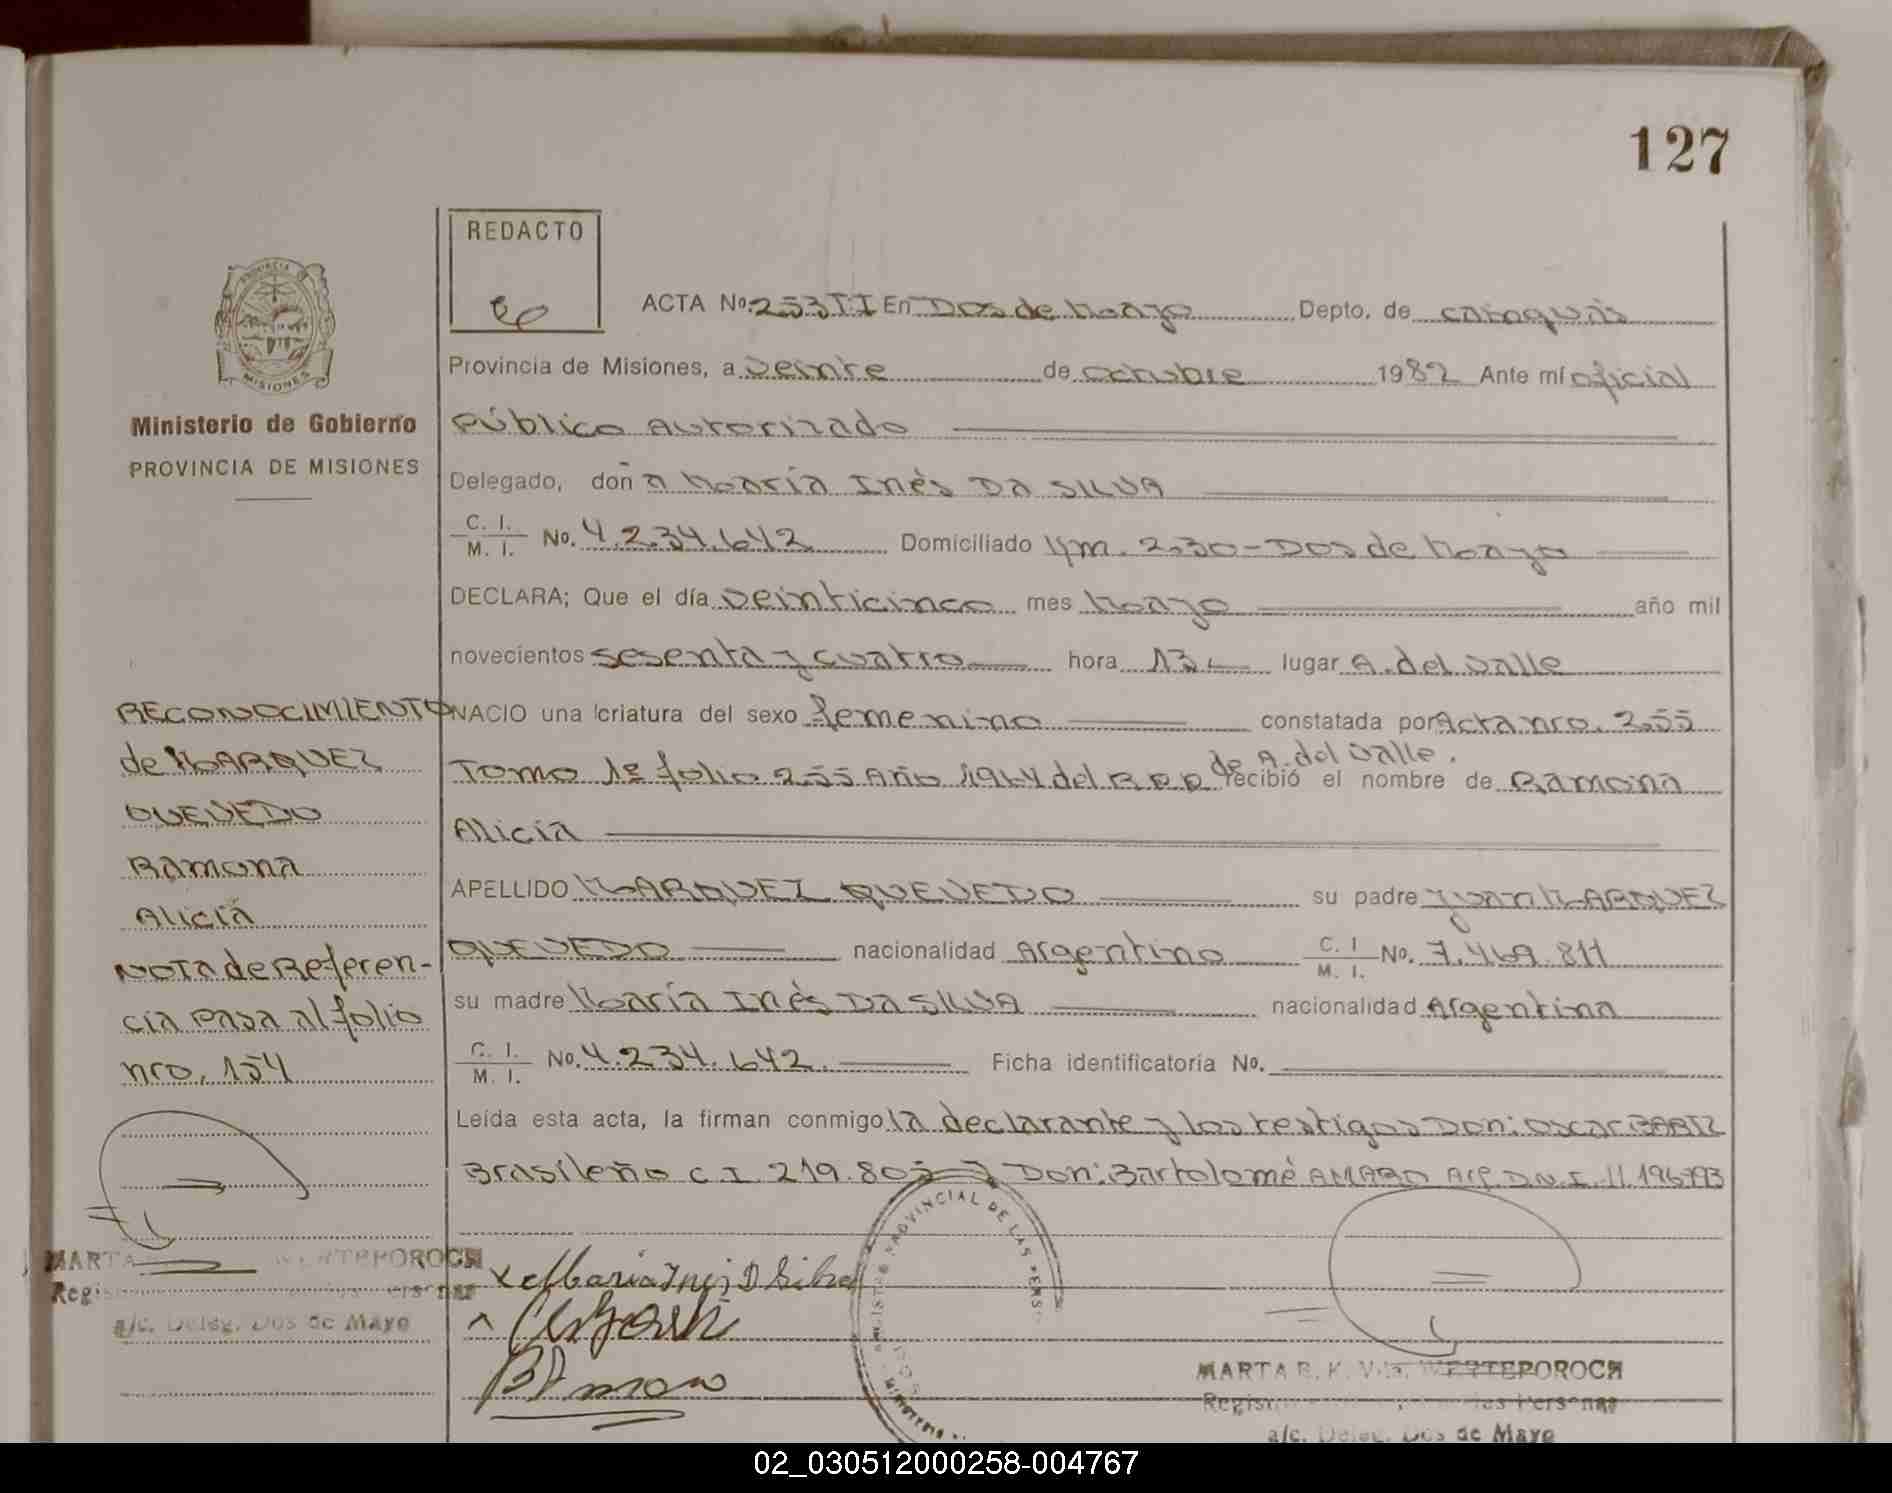 127
REDACTO
ACTA No. 253 TI En Dos de Mayo Depto. de Cainguás
Provincia de Misiones, a veinte de octubre 1982 Ante mí oficial
Público Autorizado
Delegado, doña María Inés DA SILVA
C. I. / M. I. No. 4.234.642 Domiciliado Km. 230 - Dos de Mayo
DECLARA; Que el día veinticinco mes Mayo año mil
novecientos sesenta y cuatro hora 13 lugar A. del Valle
NACIO una criatura del sexo femenino constatada por Acta nro. 255
Tomo 1º folio 255 Año 1964 del R.P.P de A. del Valle. recibió el nombre de Ramona
Alicia
APELLIDO MARQUEZ QUEVEDO su padre Juan MARQUEZ
QUEVEDO nacionalidad Argentino C. I / M. I. No. 7.469.811
su madre María Inés DA SILVA nacionalidad Argentina
C. I. / M. I. No. 4.234.642. Ficha identificatoria No.
Leída esta acta, la firman conmigo la declarante y los testigos Don: Oscar
Brasileño C.I. 219.805 y Don: Bartolomé AMARO Arg. D.N.I. 11.196793
PROVINCIA
MISIONES
Ministerio de Gobierno
PROVINCIA DE MISIONES
RECONOCIMIENTO
de MARQUEZ
QUEVEDO
Ramona
Alicia
NOTA de Referen-
cia pasa al folio
nro. 154
MARTA WESTEPOROCH
a/c. Deleg. Dos de Mayo
x Maria Ines D Silva
B Amaro
PROVINCIAL DE LAS PERS
MARTA E. K. Vda. WESTEPOROCH
las Personas
a/c. Deleg. Dos de Mayo
02_030512000258-004767